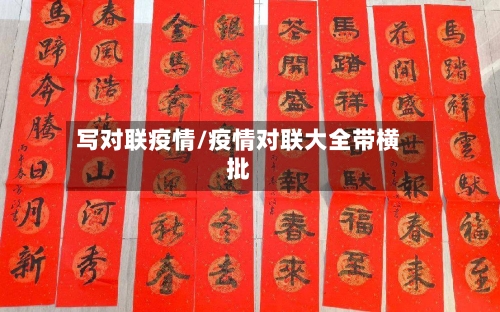 写对联疫情/疫情对联大全带横
批
馬踏祥雲馱福至
花開盛世報春来
馬踏祥馱福至
花開盛報春來
銀蛇冬去
金馬奮迎春
春風浩山河秀
馬蹄奔騰日月新